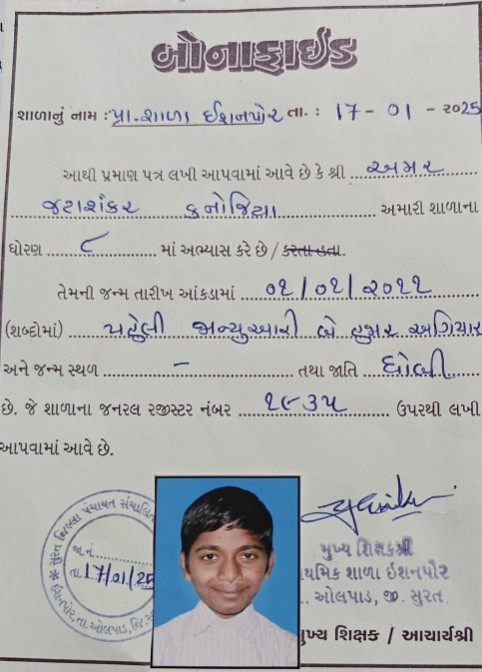 બોનાફાઈડ
શાળાનું નામ : પ્રા. શાળા ઈશનપોર તા. : 17 - 01 - ૨૦25
આથી પ્રમાણ પત્ર લખી આપવામાં આવે છે કે શ્રી અમર
જટાશંકર કનોજિયા અમારી શાળાના
ધોરણ ૮ માં અભ્યાસ કરે છે / કરતા હતા.
તેમની જન્મ તારીખ આંકડામાં ૦૧/૦૧/૨૦૧૧
(શબ્દોમાં) પહેલી જાન્યુઆરી બે હજાર અગિયાર
અને જન્મ સ્થળ - તથા જાતિ ધોબી
છે. જે શાળાના જનરલ રજીસ્ટર નંબર ૧૯૩૫ ઉપરથી લખી
આપવામાં આવે છે.
સુરત જિલ્લા પંચાયત સંચાલિત
જા.નં.
તા. 17/01/25
ઈશનપોર, તા. ઓલપાડ, જિ.
મુખ્ય શિક્ષકશ્રી
થમિક શાળા ઇશનપોર
. ઓલપાડ, જી. સુરત.
મુખ્ય શિક્ષક / આચાર્યશ્રી